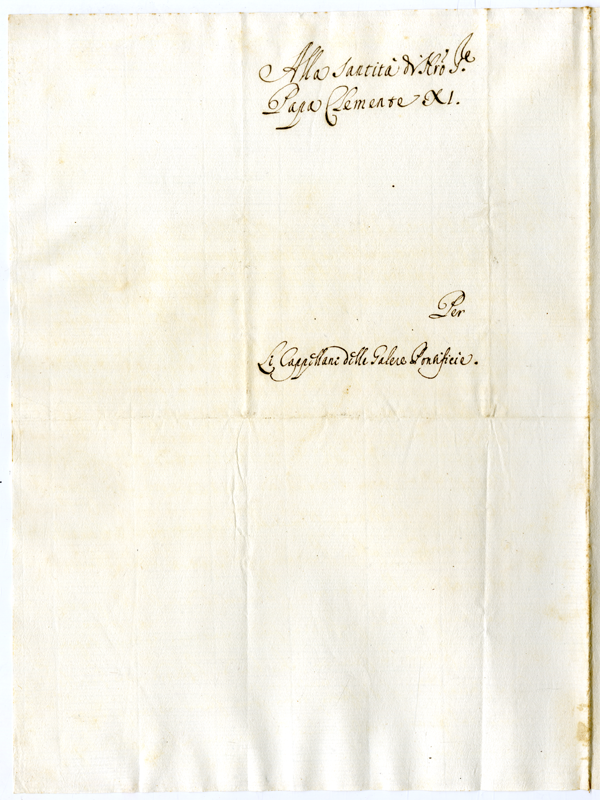 Alla Santità di N̄ro Sre
Papa Clemente XI.
Per
Li Cappellani delle Galere Pontificie.